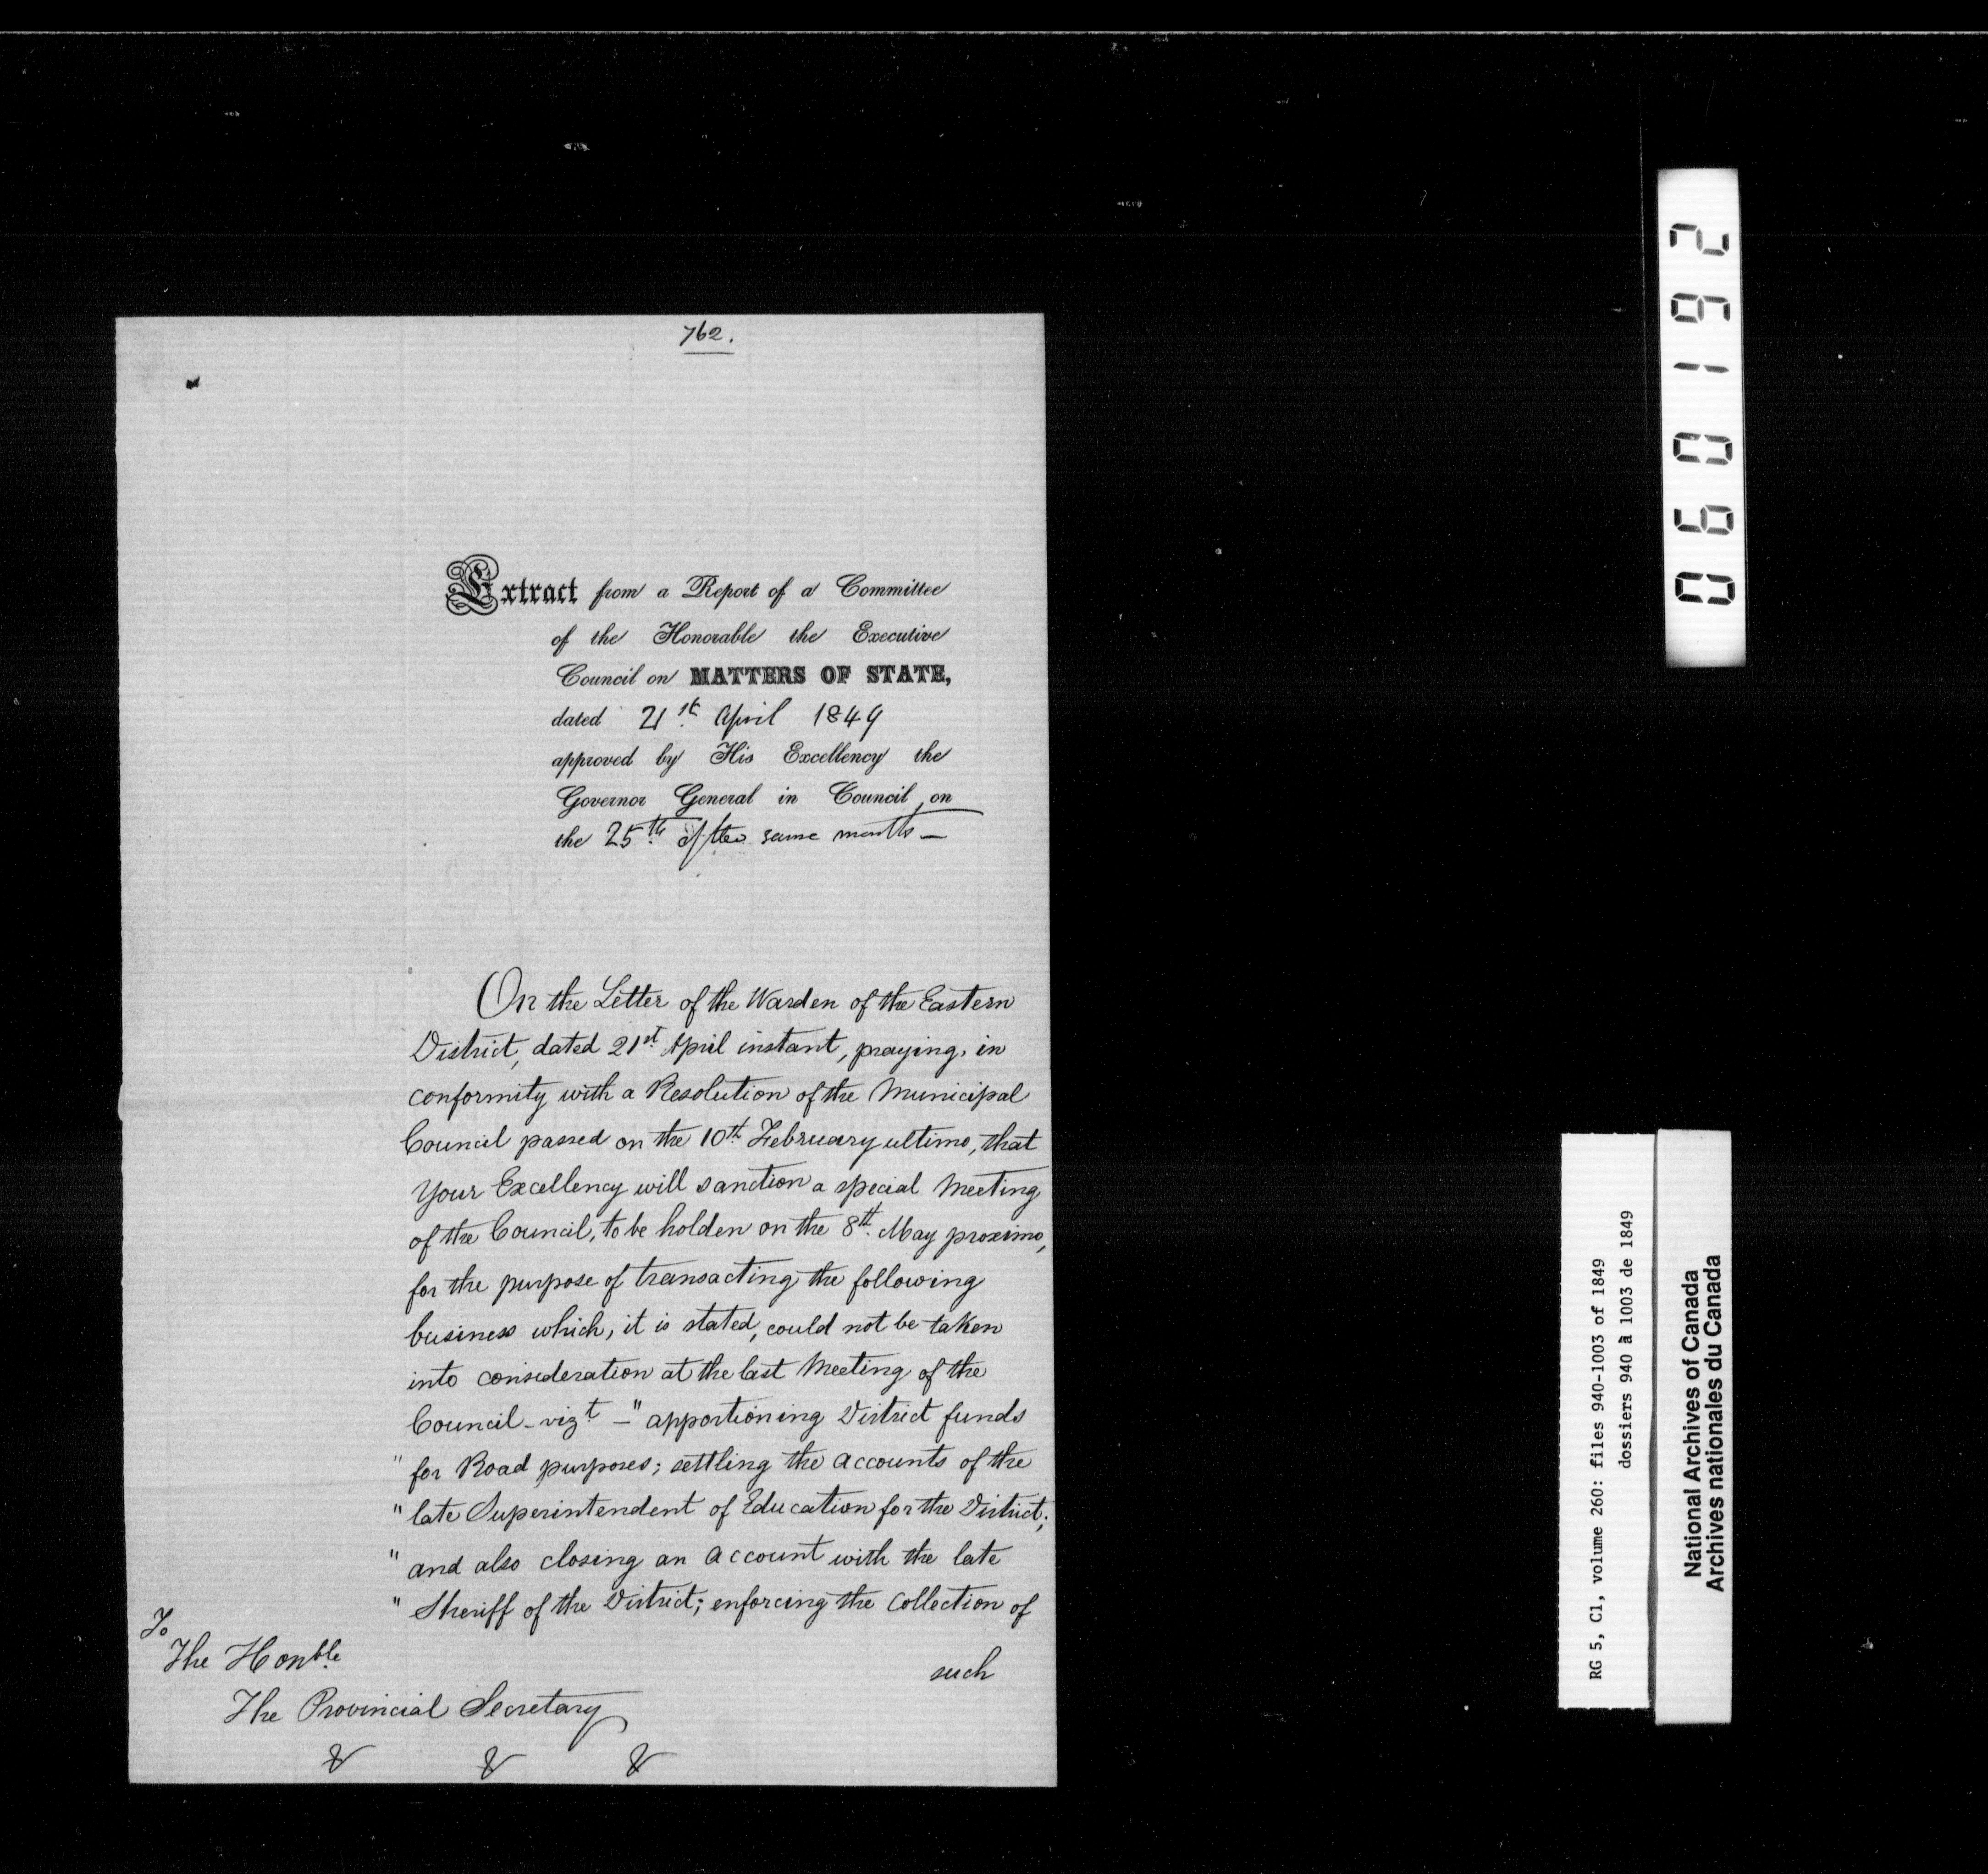 762.
Extract from a Report of a Committee
of the Honorable the Executive
Council on MATTERS OF STATE,
dated 21st April 1849
approved by His Excellency the
Governor General in Council, on
the 25th of the same month —
On the Letter of the Warden of the Eastern
District, dated 21st April instant, praying, in
conformity with a Resolution of the Municipal
Council passed on the 10th February ultimo, that
Your Excellency will sanction a special Meeting
of the Council, to be holden on the 8th May proximo,
for the purpose of transacting the following
business which, it is stated, could not be taken
into consideration at the last Meeting of the
Council - vizt - "apportioning District funds
" for Road purposes; settling the accounts of the
" late Superintendent of Education for the District;
" and also closing an account with the late
" Sheriff of the District; enforcing the collection of
such
To
The Honble
The Provincial Secretary
& & &
060192
RG 5, C1, volume 260: files 940-1003 of 1849
dossiers 940 à 1003 de 1849
National Archives of Canada
Archives nationales du Canada